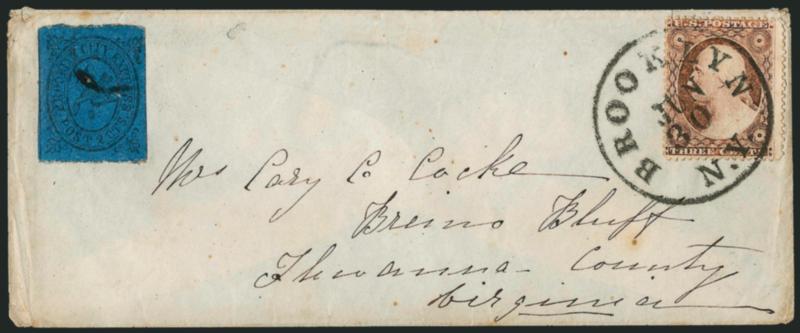 CITY EXPRESS POST
U.S. POSTAGE
THREE CENTS
BROOKLYN N.Y.
Mrs Cary C. Cocke
Bremo Bluff
Fluvanna County
Virginia